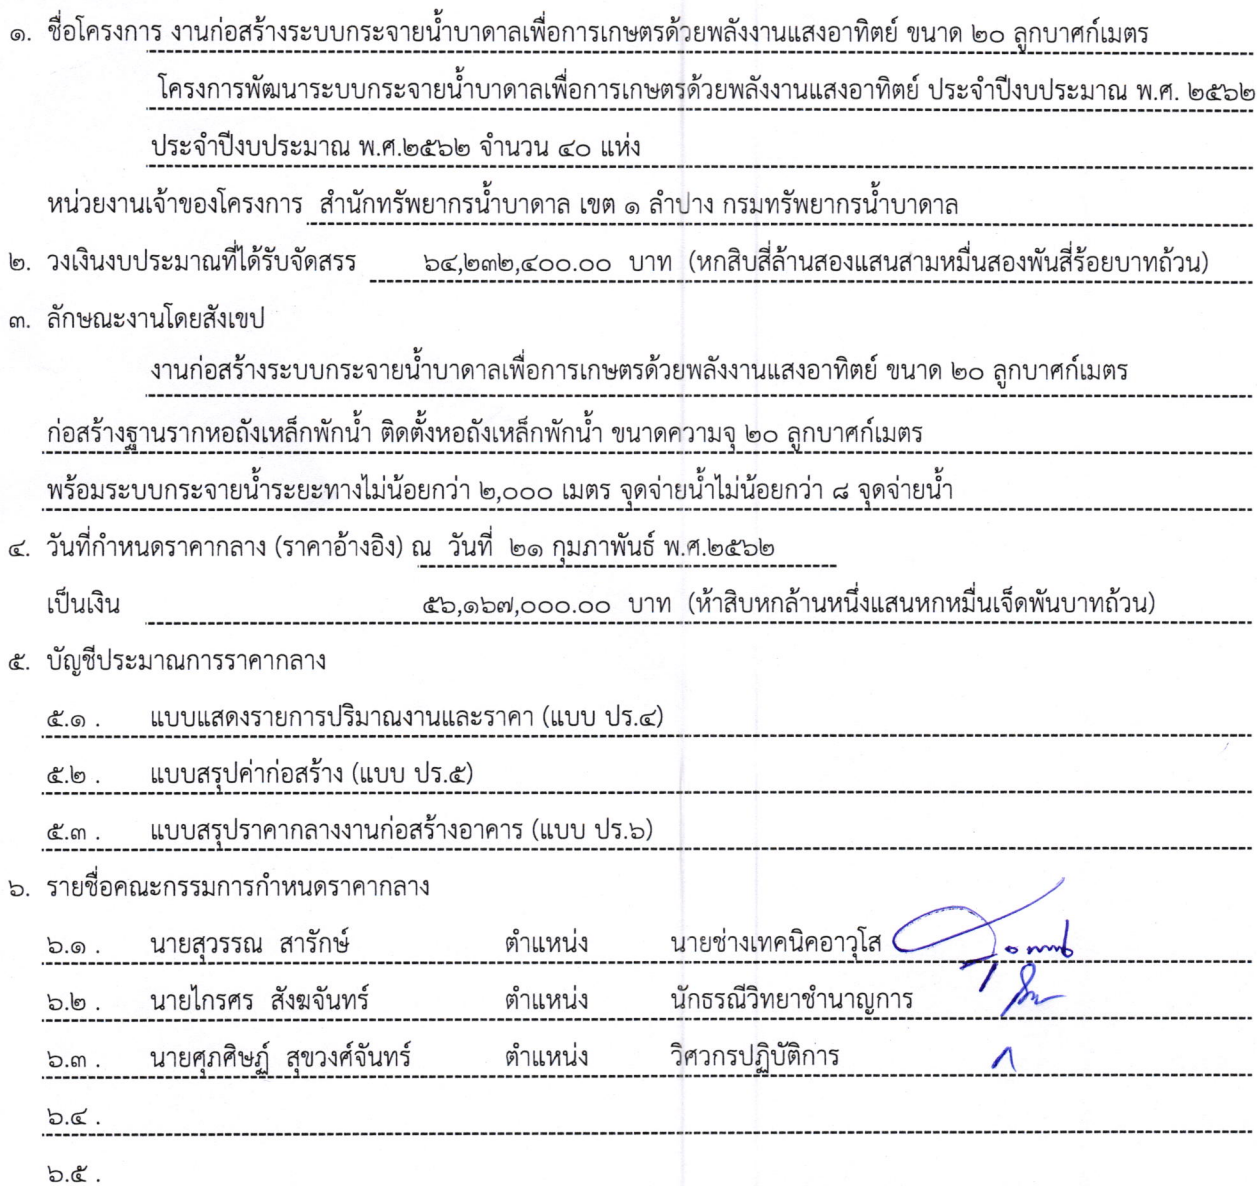 ๑. ชื่อโครงการ งานก่อสร้างระบบกระจายน้ำบาดาลเพื่อการเกษตรด้วยพลังงานแสงอาทิตย์ ขนาด ๒๐ ลูกบาศก์เมตร
โครงการพัฒนาระบบกระจายน้ำบาดาลเพื่อการเกษตรด้วยพลังงานแสงอาทิตย์ ประจำปีงบประมาณ พ.ศ. ๒๕๖๒
ประจำปีงบประมาณ พ.ศ.๒๕๖๒ จำนวน ๔๐ แห่ง
หน่วยงานเจ้าของโครงการ สำนักทรัพยากรน้ำบาดาล เขต ๑ ลำปาง กรมทรัพยากรน้ำบาดาล
๒. วงเงินงบประมาณที่ได้รับจัดสรร ๖๔,๒๓๒,๔๐๐.๐๐ บาท (หกสิบสี่ล้านสองแสนสามหมื่นสองพันสี่ร้อยบาทถ้วน)
๓. ลักษณะงานโดยสังเขป
งานก่อสร้างระบบกระจายน้ำบาดาลเพื่อการเกษตรด้วยพลังงานแสงอาทิตย์ ขนาด ๒๐ ลูกบาศก์เมตร
ก่อสร้างฐานรากหอถังเหล็กพักน้ำ ติดตั้งหอถังเหล็กพักน้ำ ขนาดความจุ ๒๐ ลูกบาศก์เมตร
พร้อมระบบกระจายน้ำระยะทางไม่น้อยกว่า ๒,๐๐๐ เมตร จุดจ่ายน้ำไม่น้อยกว่า ๘ จุดจ่ายน้ำ
๔. วันที่กำหนดราคากลาง (ราคาอ้างอิง) ณ วันที่ ๒๑ กุมภาพันธ์ พ.ศ.๒๕๖๒
เป็นเงิน ๕๖,๑๖๗,๐๐๐.๐๐ บาท (ห้าสิบหกล้านหนึ่งแสนหกหมื่นเจ็ดพันบาทถ้วน)
๕. บัญชีประมาณการราคากลาง
๕.๑ . แบบแสดงรายการปริมาณงานและราคา (แบบ ปร.๔)
๕.๒ . แบบสรุปค่าก่อสร้าง (แบบ ปร.๕)
๕.๓ . แบบสรุปราคากลางงานก่อสร้างอาคาร (แบบ ปร.๖)
๖. รายชื่อคณะกรรมการกำหนดราคากลาง
๖.๑ . นายสุวรรณ สารักษ์ ตำแหน่ง นายช่างเทคนิคอาวุโส
๖.๒ . นายไกรศร สังฆจันทร์ ตำแหน่ง นักธรณีวิทยาชำนาญการ
๖.๓ . นายศุภศิษฏ์ สุขวงศ์จันทร์ ตำแหน่ง วิศวกรปฏิบัติการ
๖.๔ .
๖.๕ .